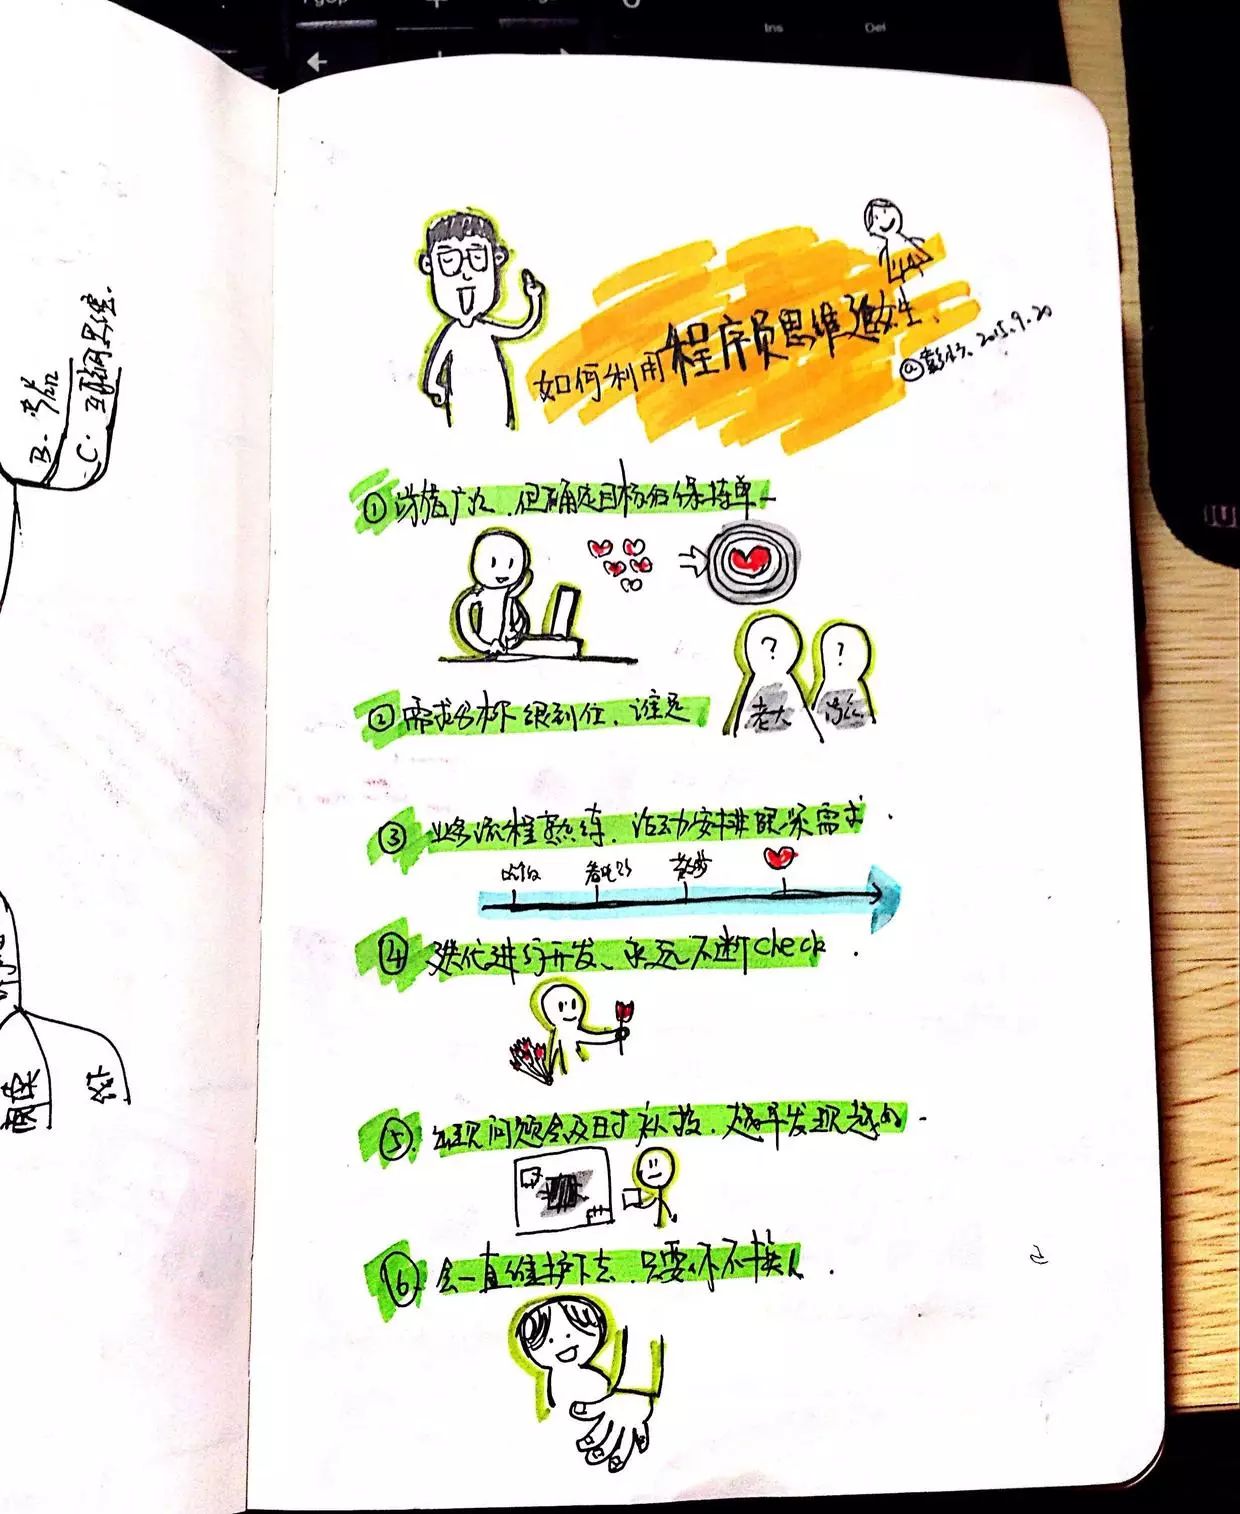 如何利用程序员思维追女生.
2015.9.20
① 广泛,但确定目标后保持单一
② 需求分析很到位,谁是
老大
③ 业务流程熟练,活动安排跟踪需求.
吃饭 看电影
④ 迭代进行开发、永远不断check.
⑤ 出现问题会及时补救,越早发现越好.
⑥ 会一直维护下去,只要你不换人.
B.
C. 互联网思维.
Ins
Del